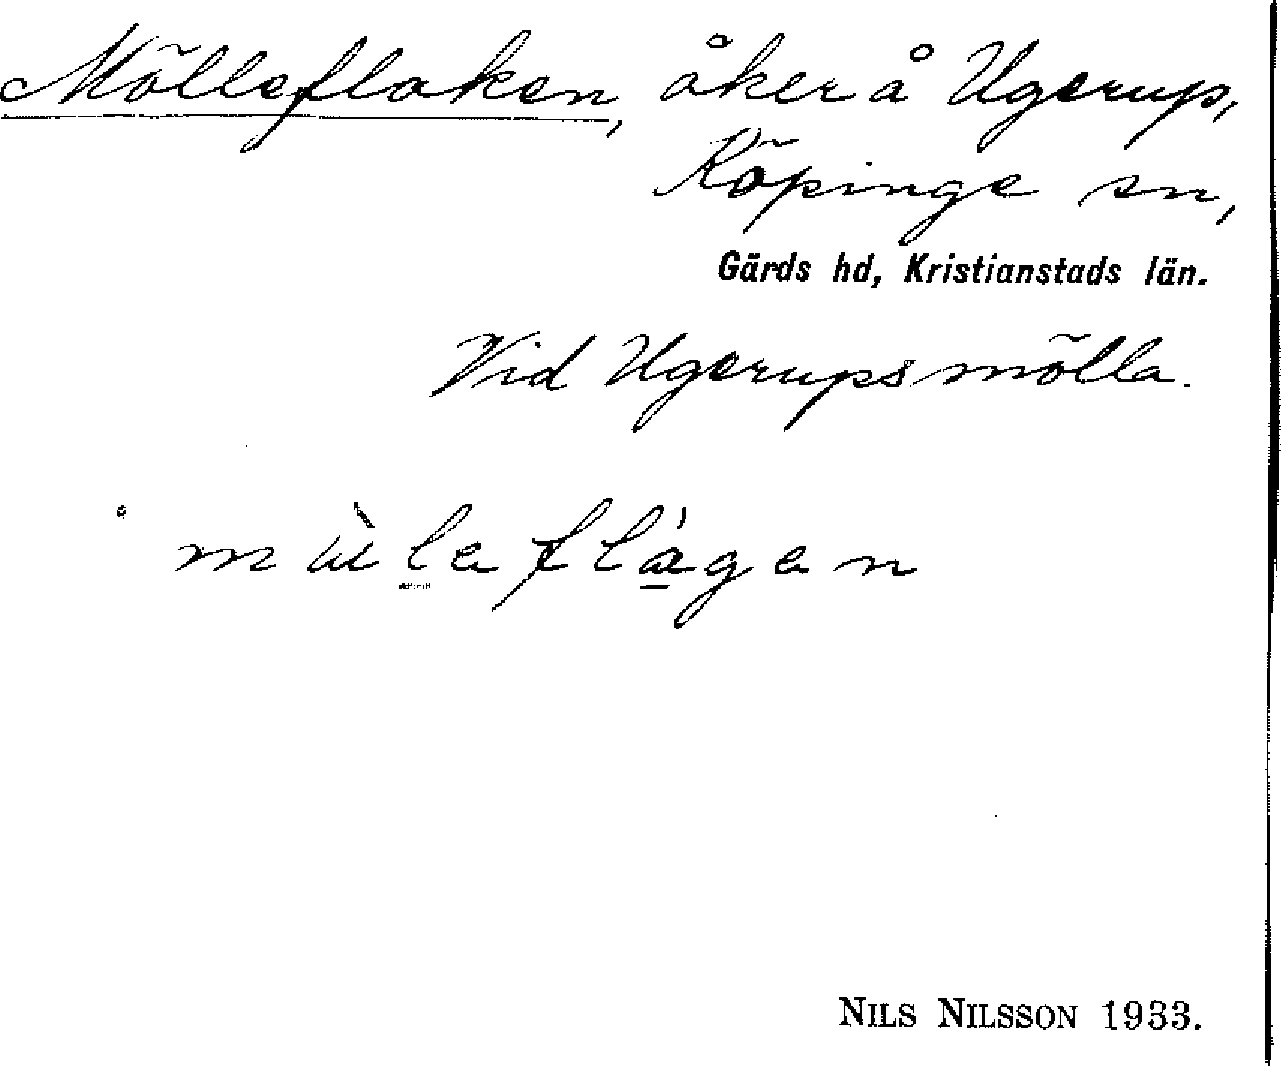 Mölleflaken, åker å Ugerup,
Köpinge sn,
Gärds hd, Kristianstads län.
Vid Ugerups mölla.
NILS NILSSON 1933.